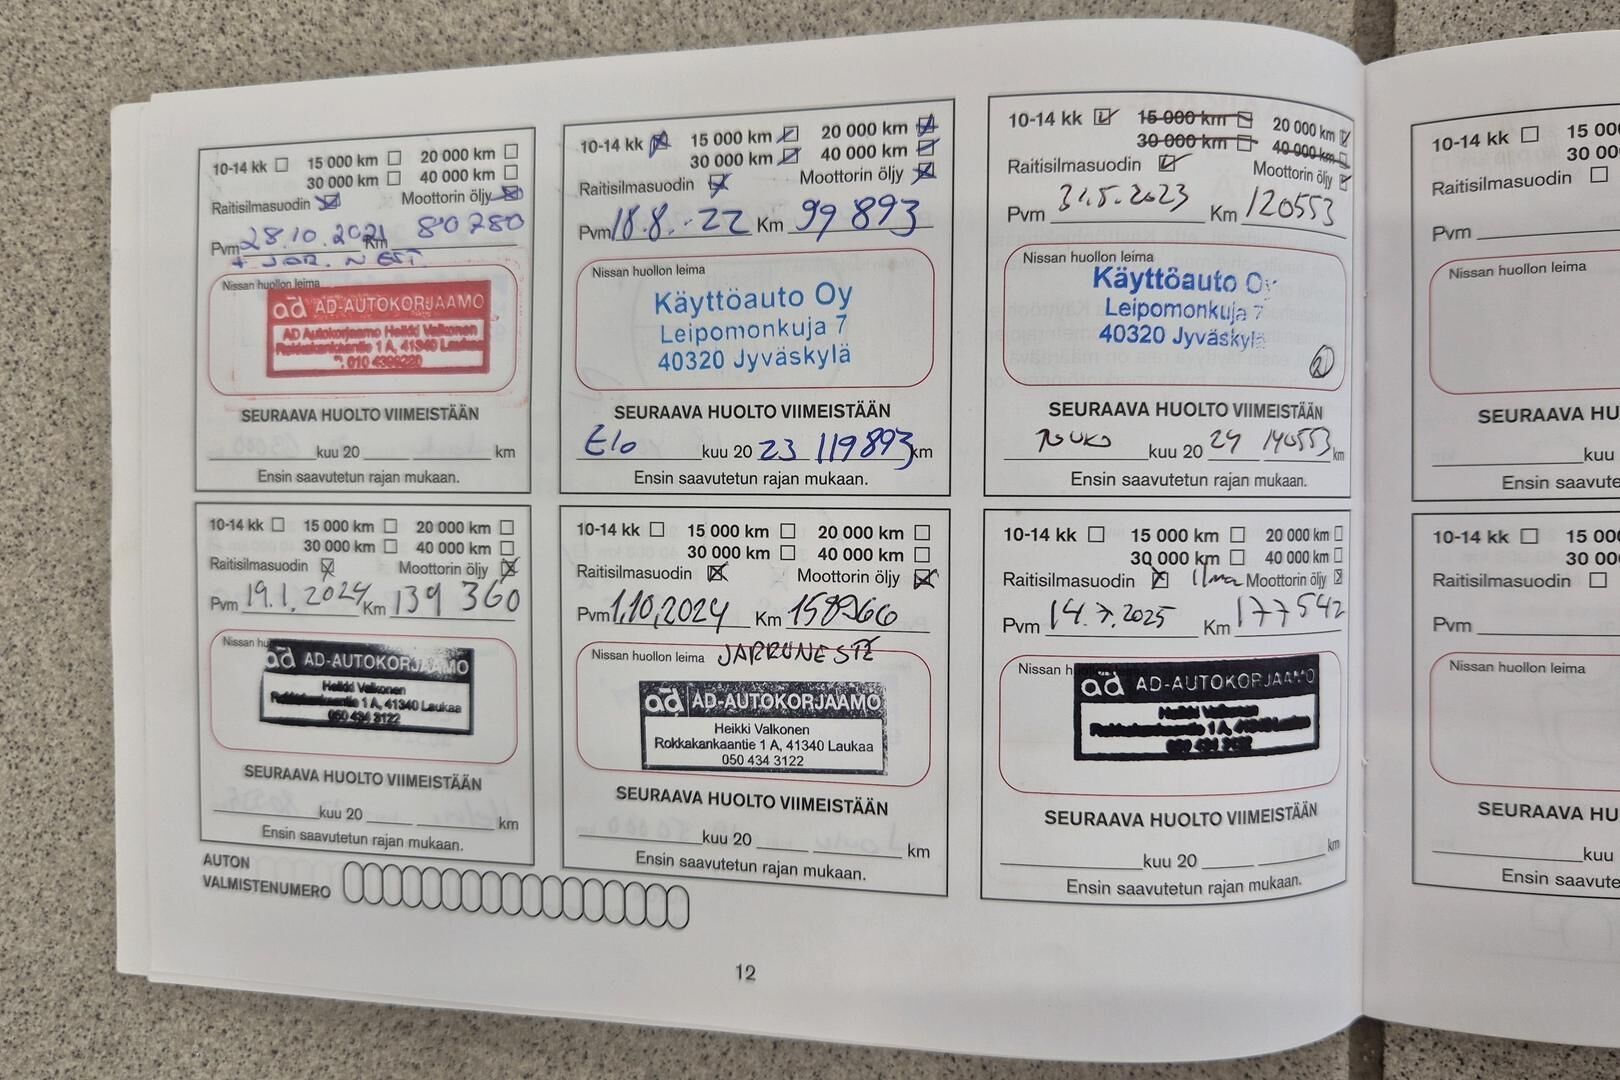 10-14 kk 15 000 km 20 000 km
30 000 km 40 000 km
Raitisilmasuodin Moottorin öljy
Pvm 28.10.2021 Km 80780
+ JAR. NEST.
Nissan huollon leima
ad AD-AUTOKORJAAMO
AD Autokorjaamo Heikki Valkonen
Rokkakankaantie 1 A, 41340 Laukaa
SEURAAVA HUOLTO VIIMEISTÄÄN
kuu 20 km
Ensin saavutetun rajan mukaan.
10-14 kk 15 000 km 20 000 km
30 000 km 40 000 km
Raitisilmasuodin Moottorin öljy
Pvm 18.8.-22 Km 99 893
Nissan huollon leima
Käyttöauto Oy
Leipomonkuja 7
40320 Jyväskylä
SEURAAVA HUOLTO VIIMEISTÄÄN
Elo kuu 20 23 119893 km
Ensin saavutetun rajan mukaan.
10-14 kk 15 000 km 20 000 km
30 000 km 40 000 km
Raitisilmasuodin Moottorin öljy
Pvm 31.5.2023 Km 120553
Nissan huollon leima
Käyttöauto Oy
Leipomonkuja 7
40320 Jyväskylä
SEURAAVA HUOLTO VIIMEISTÄÄN
TOUKO kuu 20 24 140553 km
Ensin saavutetun rajan mukaan.
10-14 kk 15 000 km 20 000 km
30 000 km 40 000 km
Raitisilmasuodin Moottorin öljy
Pvm 19.1.2024 Km 139 360
Nissan
ad AD-AUTOKORJAAMO
Heikki Valkonen
Rokkakankaantie 1 A, 41340 Laukaa
050 434 3122
SEURAAVA HUOLTO VIIMEISTÄÄN
kuu 20 km
Ensin saavutetun rajan mukaan.
10-14 kk 15 000 km 20 000 km
30 000 km 40 000 km
Raitisilmasuodin Moottorin öljy
Pvm 1.10.2024 Km 158966
Nissan huollon leima JARRUNESTE
ad AD-AUTOKORJAAMO
Heikki Valkonen
Rokkakankaantie 1 A, 41340 Laukaa
050 434 3122
SEURAAVA HUOLTO VIIMEISTÄÄN
kuu 20 km
Ensin saavutetun rajan mukaan.
10-14 kk 15 000 km 20 000 km
30 000 km 40 000 km
Raitisilmasuodin Ilma Moottorin öljy
Pvm 14.7.2025 Km 177542
Nissan
ad AD-AUTOKORJAAMO
Heikki Valkonen
Rokkakankaantie 1 A, 41340 Laukaa
050 434 3122
SEURAAVA HUOLTO VIIMEISTÄÄN
kuu 20 km
Ensin saavutetun rajan mukaan.
AUTON
VALMISTENUMERO
12
10-14 kk 15 00
30 00
Raitisilmasuodin
Pvm
Nissan huollon leima
SEURAAVA HU
kuu
Ensin saavute
10-14 kk 15 00
30 00
Raitisilmasuodin
Pvm
Nissan huollon leima
SEURAAVA HU
kuu
Ensin saavute